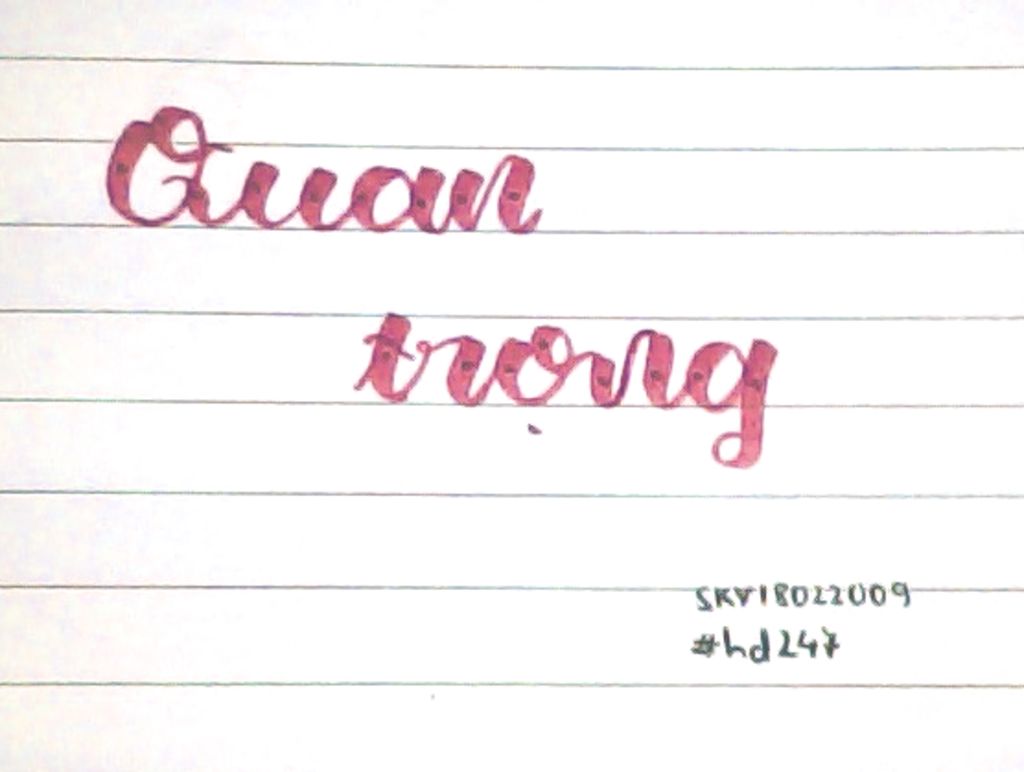 Quan
trọng
SKY18022009
#hd247